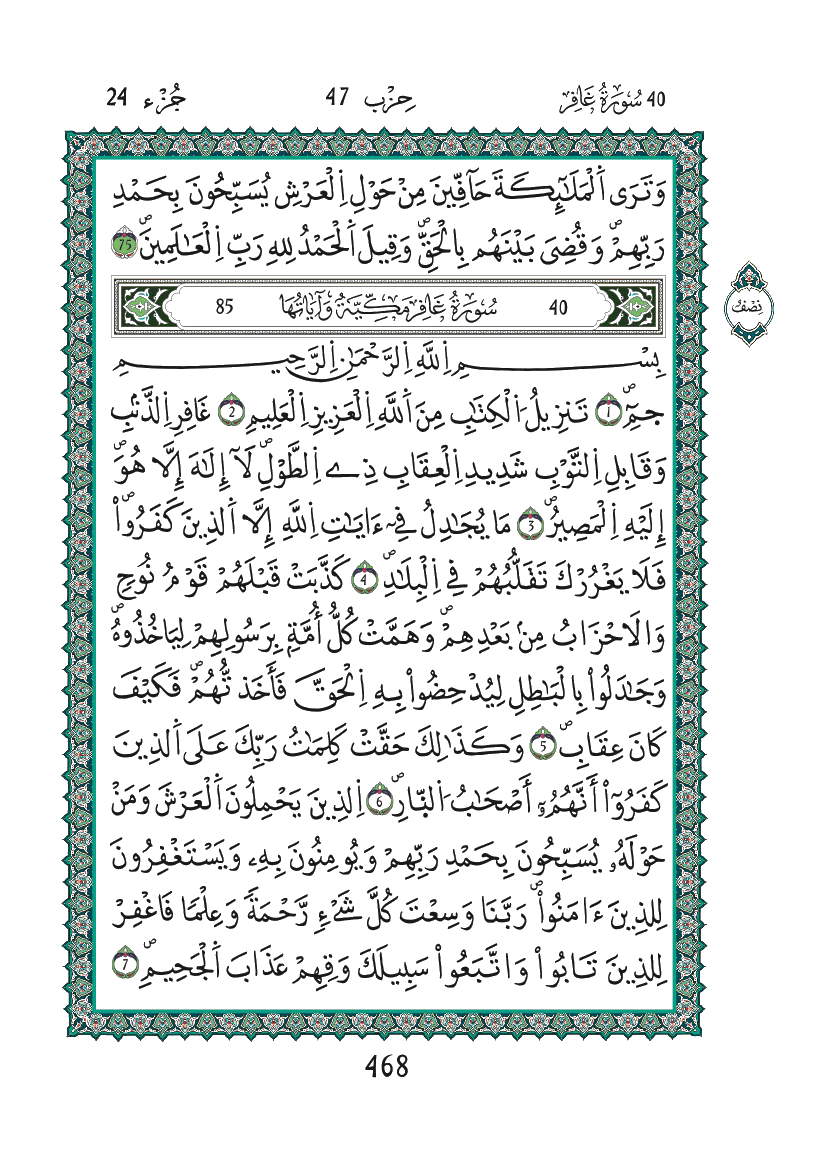 40 سُورَةُ غَافِرٍ حِزْب 47 جُزْء 24
وَتَرَى اَ۬لْمَلَٰٓئِكَةَ حَآفِّينَ مِنْ حَوْلِ اِ۬لْعَرْشِ يُسَبِّحُونَ بِحَمْدِ
رَبِّهِمْۖ وَقُضِيَ بَيْنَهُم بِالْحَقِّۖ وَقِيلَ اَ۬لْحَمْدُ لِلهِ رَبِّ اِ۬لْعَٰلَمِينَۖ 75
40 سُورَةُ غَافِرٍ مَكِّيَّةٌ وَءَايَاتُهَا 85
نِصْفُ
بِسْمِ اِ۬للَّهِ اِ۬لرَّحْمَٰنِ اِ۬لرَّحِيمِ
حمِٓۖ 1 تَنزِيلُ اُ۬لْكِتَٰبِ مِنَ اَ۬للَّهِ اِ۬لْعَزِيزِ اِ۬لْعَلِيمِ 2 غَافِرِ اِ۬لذَّنۢبِ
وَقَابِلِ اِ۬لتَّوْبِ شَدِيدِ اِ۬لْعِقَابِ ذِے اِ۬لطَّوْلِۖ لَآ إِلَٰهَ إِلَّا هُوَۖ
إِلَيْهِ اِ۬لْمَصِيرُۖ 3 مَا يُجَٰدِلُ فِےٓ ءَايَٰتِ اِ۬للَّهِ إِلَّا اَ۬لذِينَ كَفَرُواْۖ
فَلَا يَغْرُرْكَ تَقَلُّبُهُمْ فِے اِ۬لْبِلَٰدِۖ 4 كَذَّبَتْ قَبْلَهُمْ قَوْمُ نُوحٍ
وَالَاحْزَابُ مِنۢ بَعْدِهِمْۖ وَهَمَّتْ كُلُّ أُمَّةِۢ بِرَسُولِهِمْ لِيَاخُذُوهُۖ
وَجَٰدَلُواْ بِالْبَٰطِلِ لِيُدْحِضُواْ بِهِ اِ۬لْحَقَّ فَأَخَذتُّهُمْۖ فَكَيْفَ
كَانَ عِقَابِۖ 5 وَكَذَٰلِكَ حَقَّتْ كَلِمَٰتُ رَبِّكَ عَلَى اَ۬لذِينَ
كَفَرُوٓاْ أَنَّهُمُۥٓ أَصْحَٰبُ اُ۬لنّ۪ارِۖ 6 اِ۬لذِينَ يَحْمِلُونَ اَ۬لْعَرْشَ وَمَنْ
حَوْلَهُۥ يُسَبِّحُونَ بِحَمْدِ رَبِّهِمْ وَيُومِنُونَ بِهِۦ وَيَسْتَغْفِرُونَ
لِلذِينَ ءَامَنُواْۖ رَبَّنَا وَسِعْتَ كُلَّ شَےْءٖ رَّحْمَةٗ وَعِلْماٗ فَاغْفِرْ
لِلذِينَ تَابُواْ وَاتَّبَعُواْ سَبِيلَكَ وَقِهِمْ عَذَابَ اَ۬لْجَحِيمِۖ 7
468